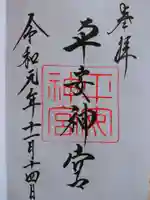 奉拝
平安神宮
平安
神宮
令和元年十一月十四日